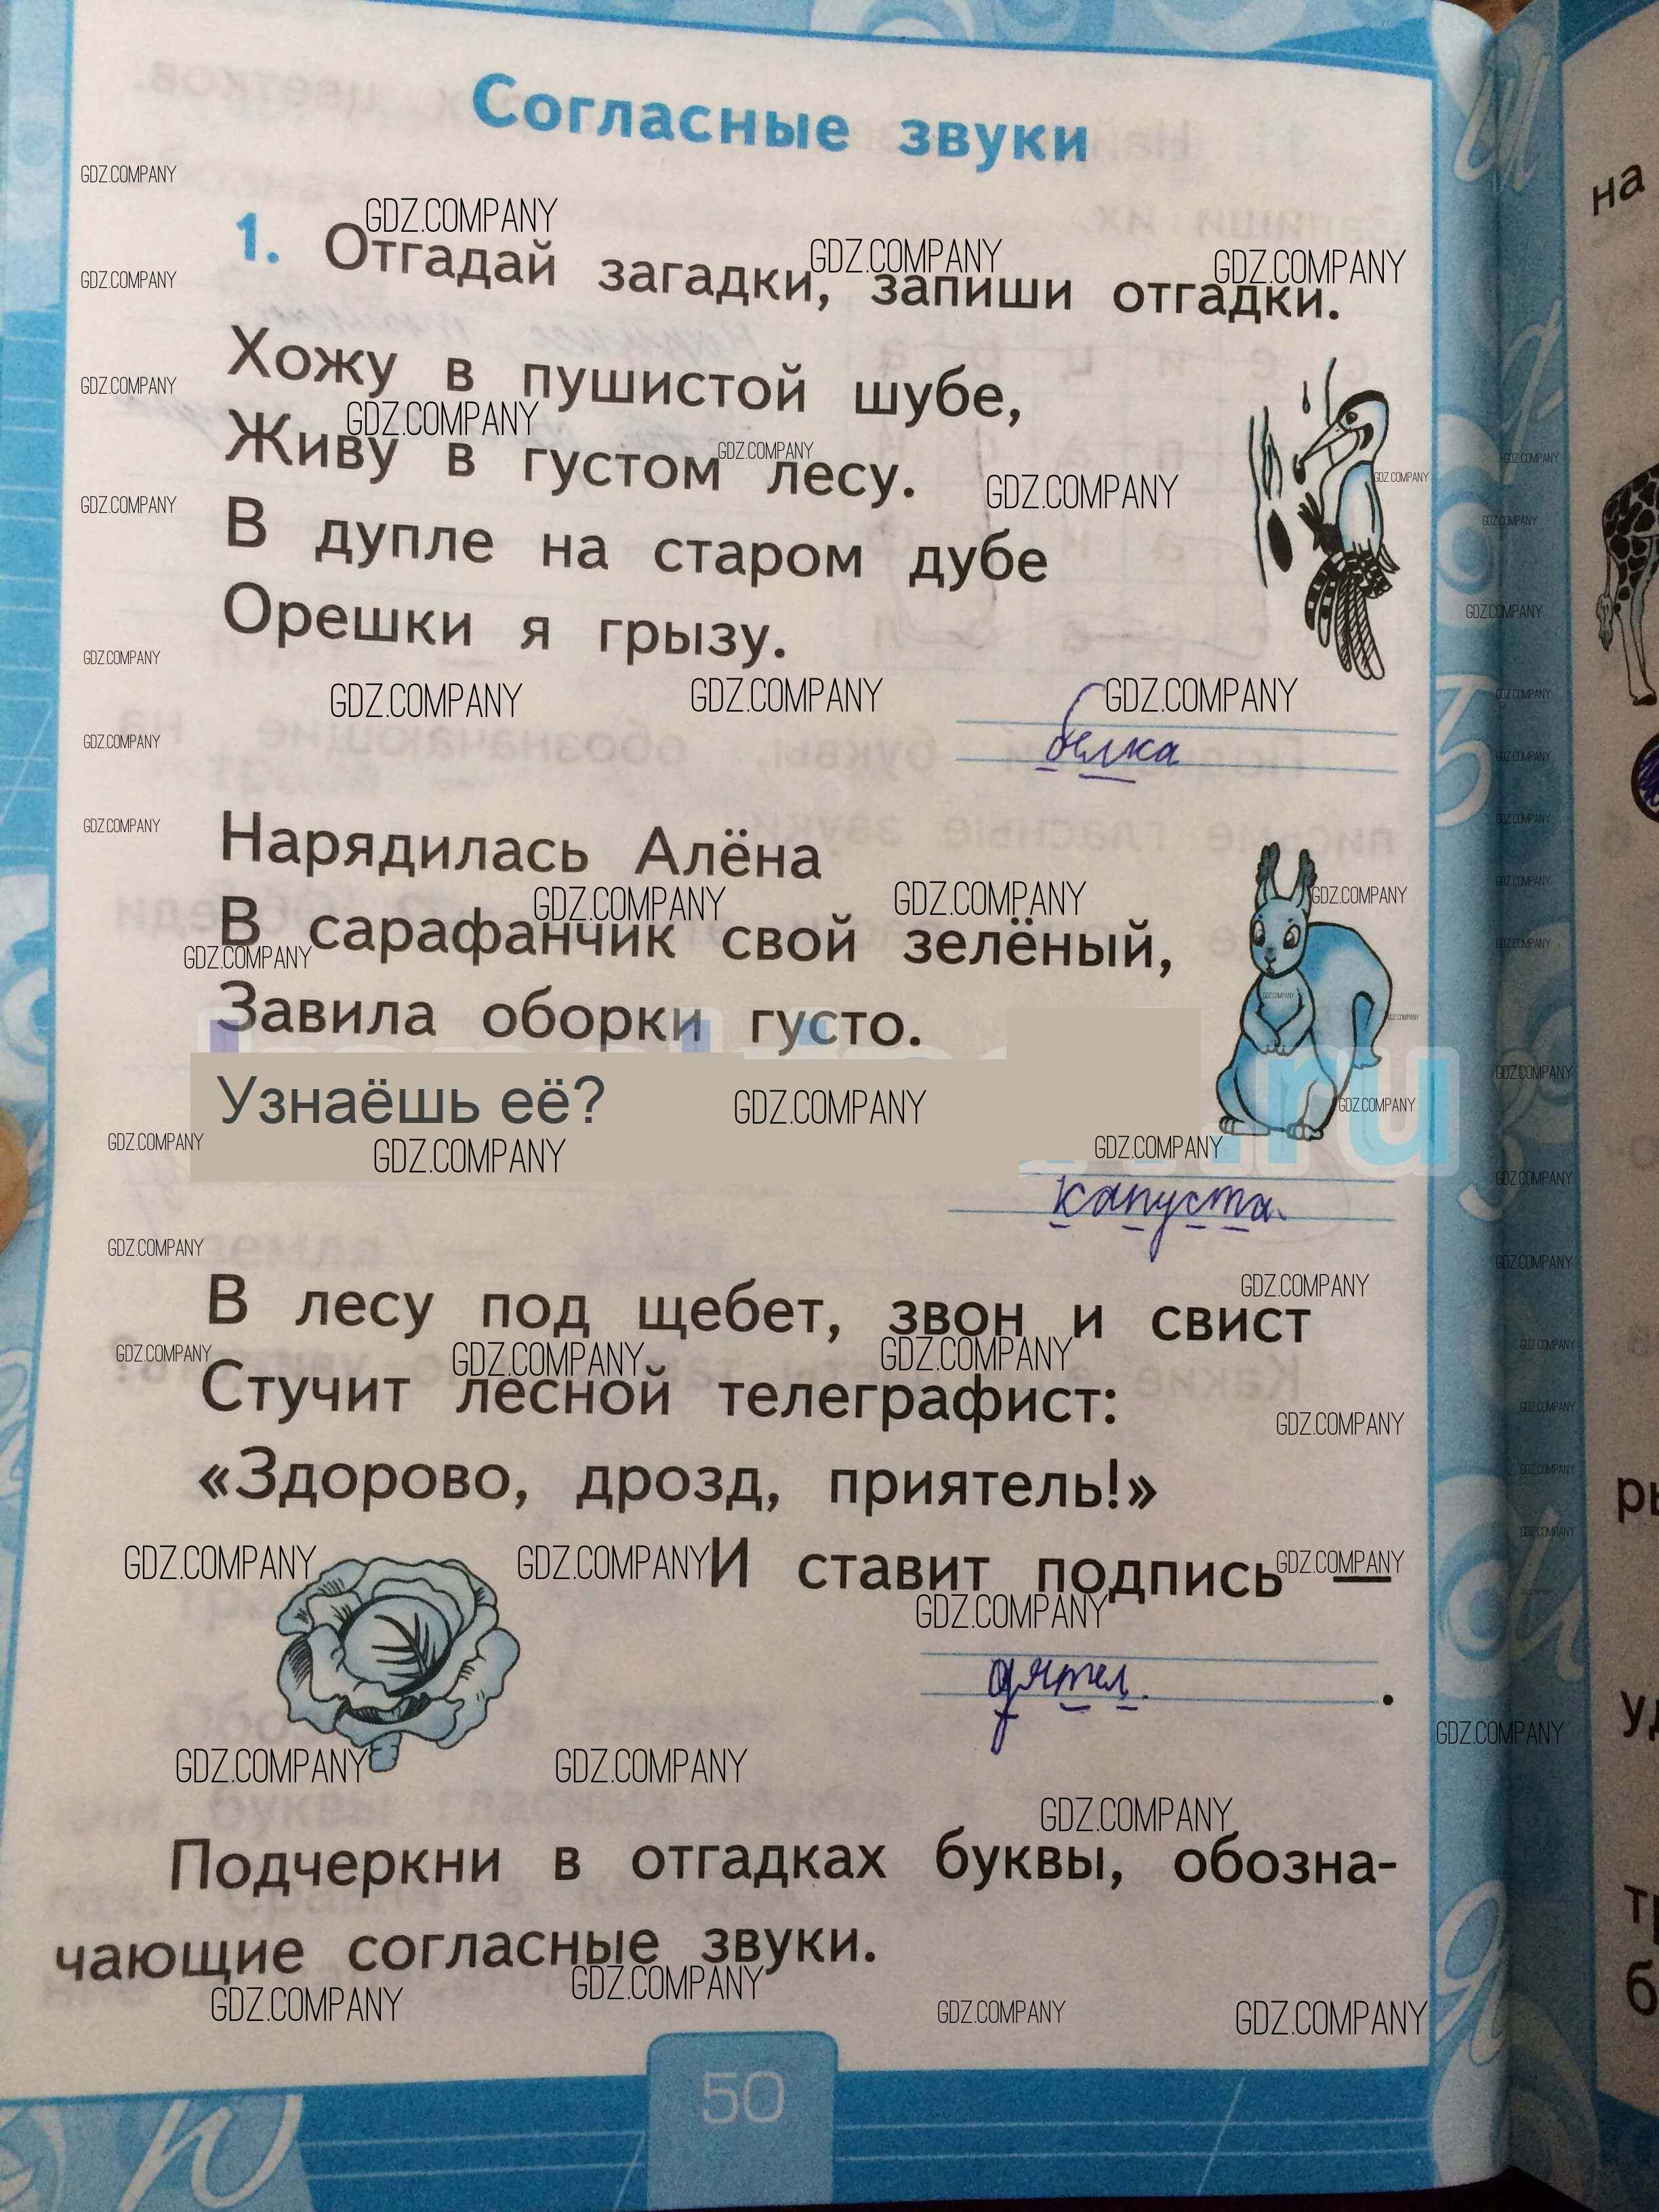 Согласные звуки
1. Отгадай загадки, запиши отгадки.
Хожу в пушистой шубе,
Живу в густом лесу.
В дупле на старом дубе
Орешки я грызу.
белка
Нарядилась Алёна
В сарафанчик свой зелёный,
Завила оборки густо.
Узнаёшь её?
капуста.
В лесу под щебет, звон и свист
Стучит лесной телеграфист:
«Здорово, дрозд, приятель!»
И ставит подпись —
дятел.
Подчеркни в отгадках буквы, обозна-
чающие согласные звуки.
50
GDZ.COMPANY
.ru
на